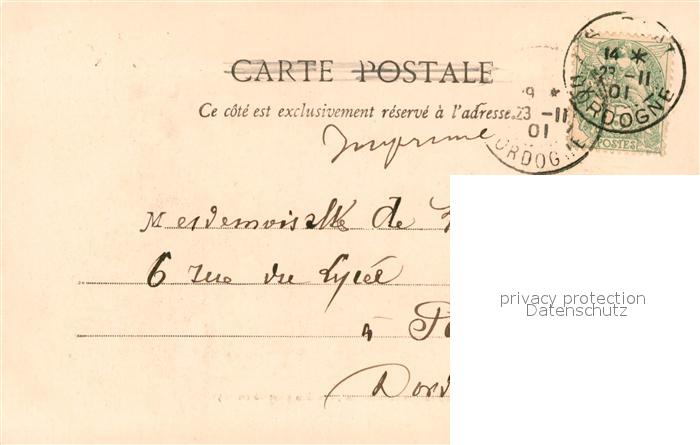 CARTE POSTALE
Ce côté est exclusivement réservé à l'adresse.
Imprimé
14 *
23 -11
01
DORDOGNE
9 *
23 -11
01
DORDOGNE
POSTES
Mesdemoiselle de
6 rue du Lycée
à
Dord
privacy protection
Datenschutz